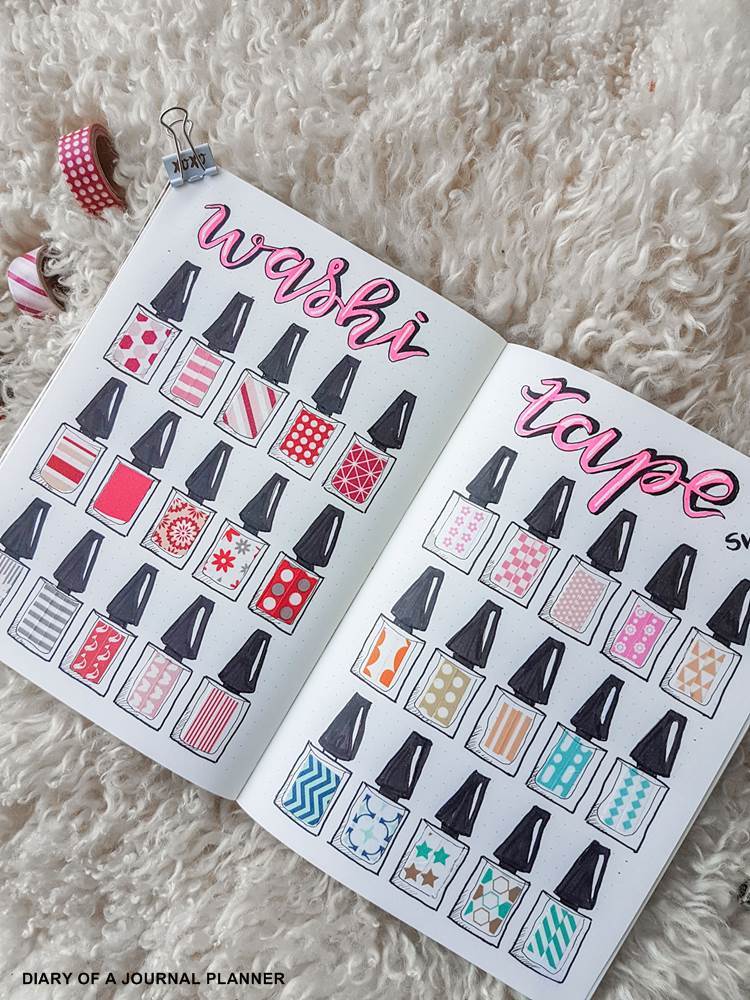 washi
tape
DIARY OF A JOURNAL PLANNER